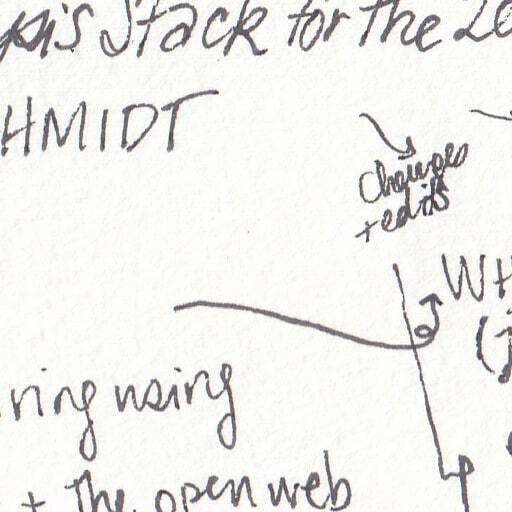 Stack for the
HMIDT
changes
+ edits
WH
ring using
+ the open web